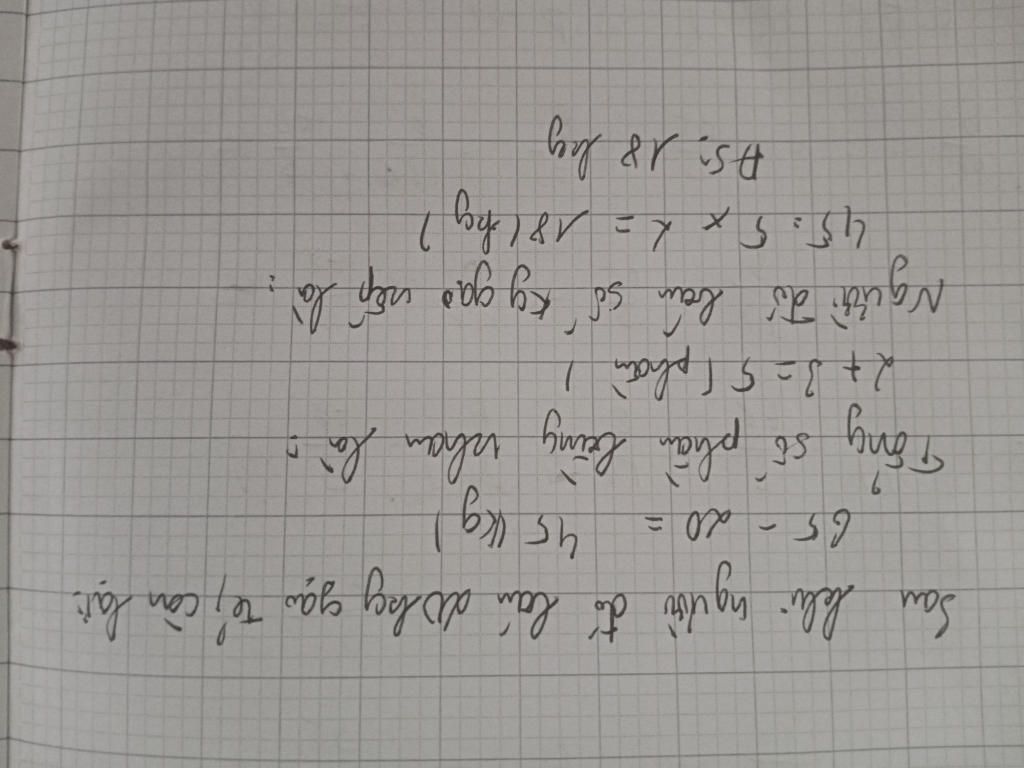 Sau khi người đó bán 20 kg gạo tẻ, còn lại:
65 - 20 = 45 (kg)
Tổng số phần bằng nhau là:
2 + 3 = 5 (phần)
Người đó bán số kg gạo nếp là:
45 : 5 x 2 = 18 (kg)
ĐS: 18 kg